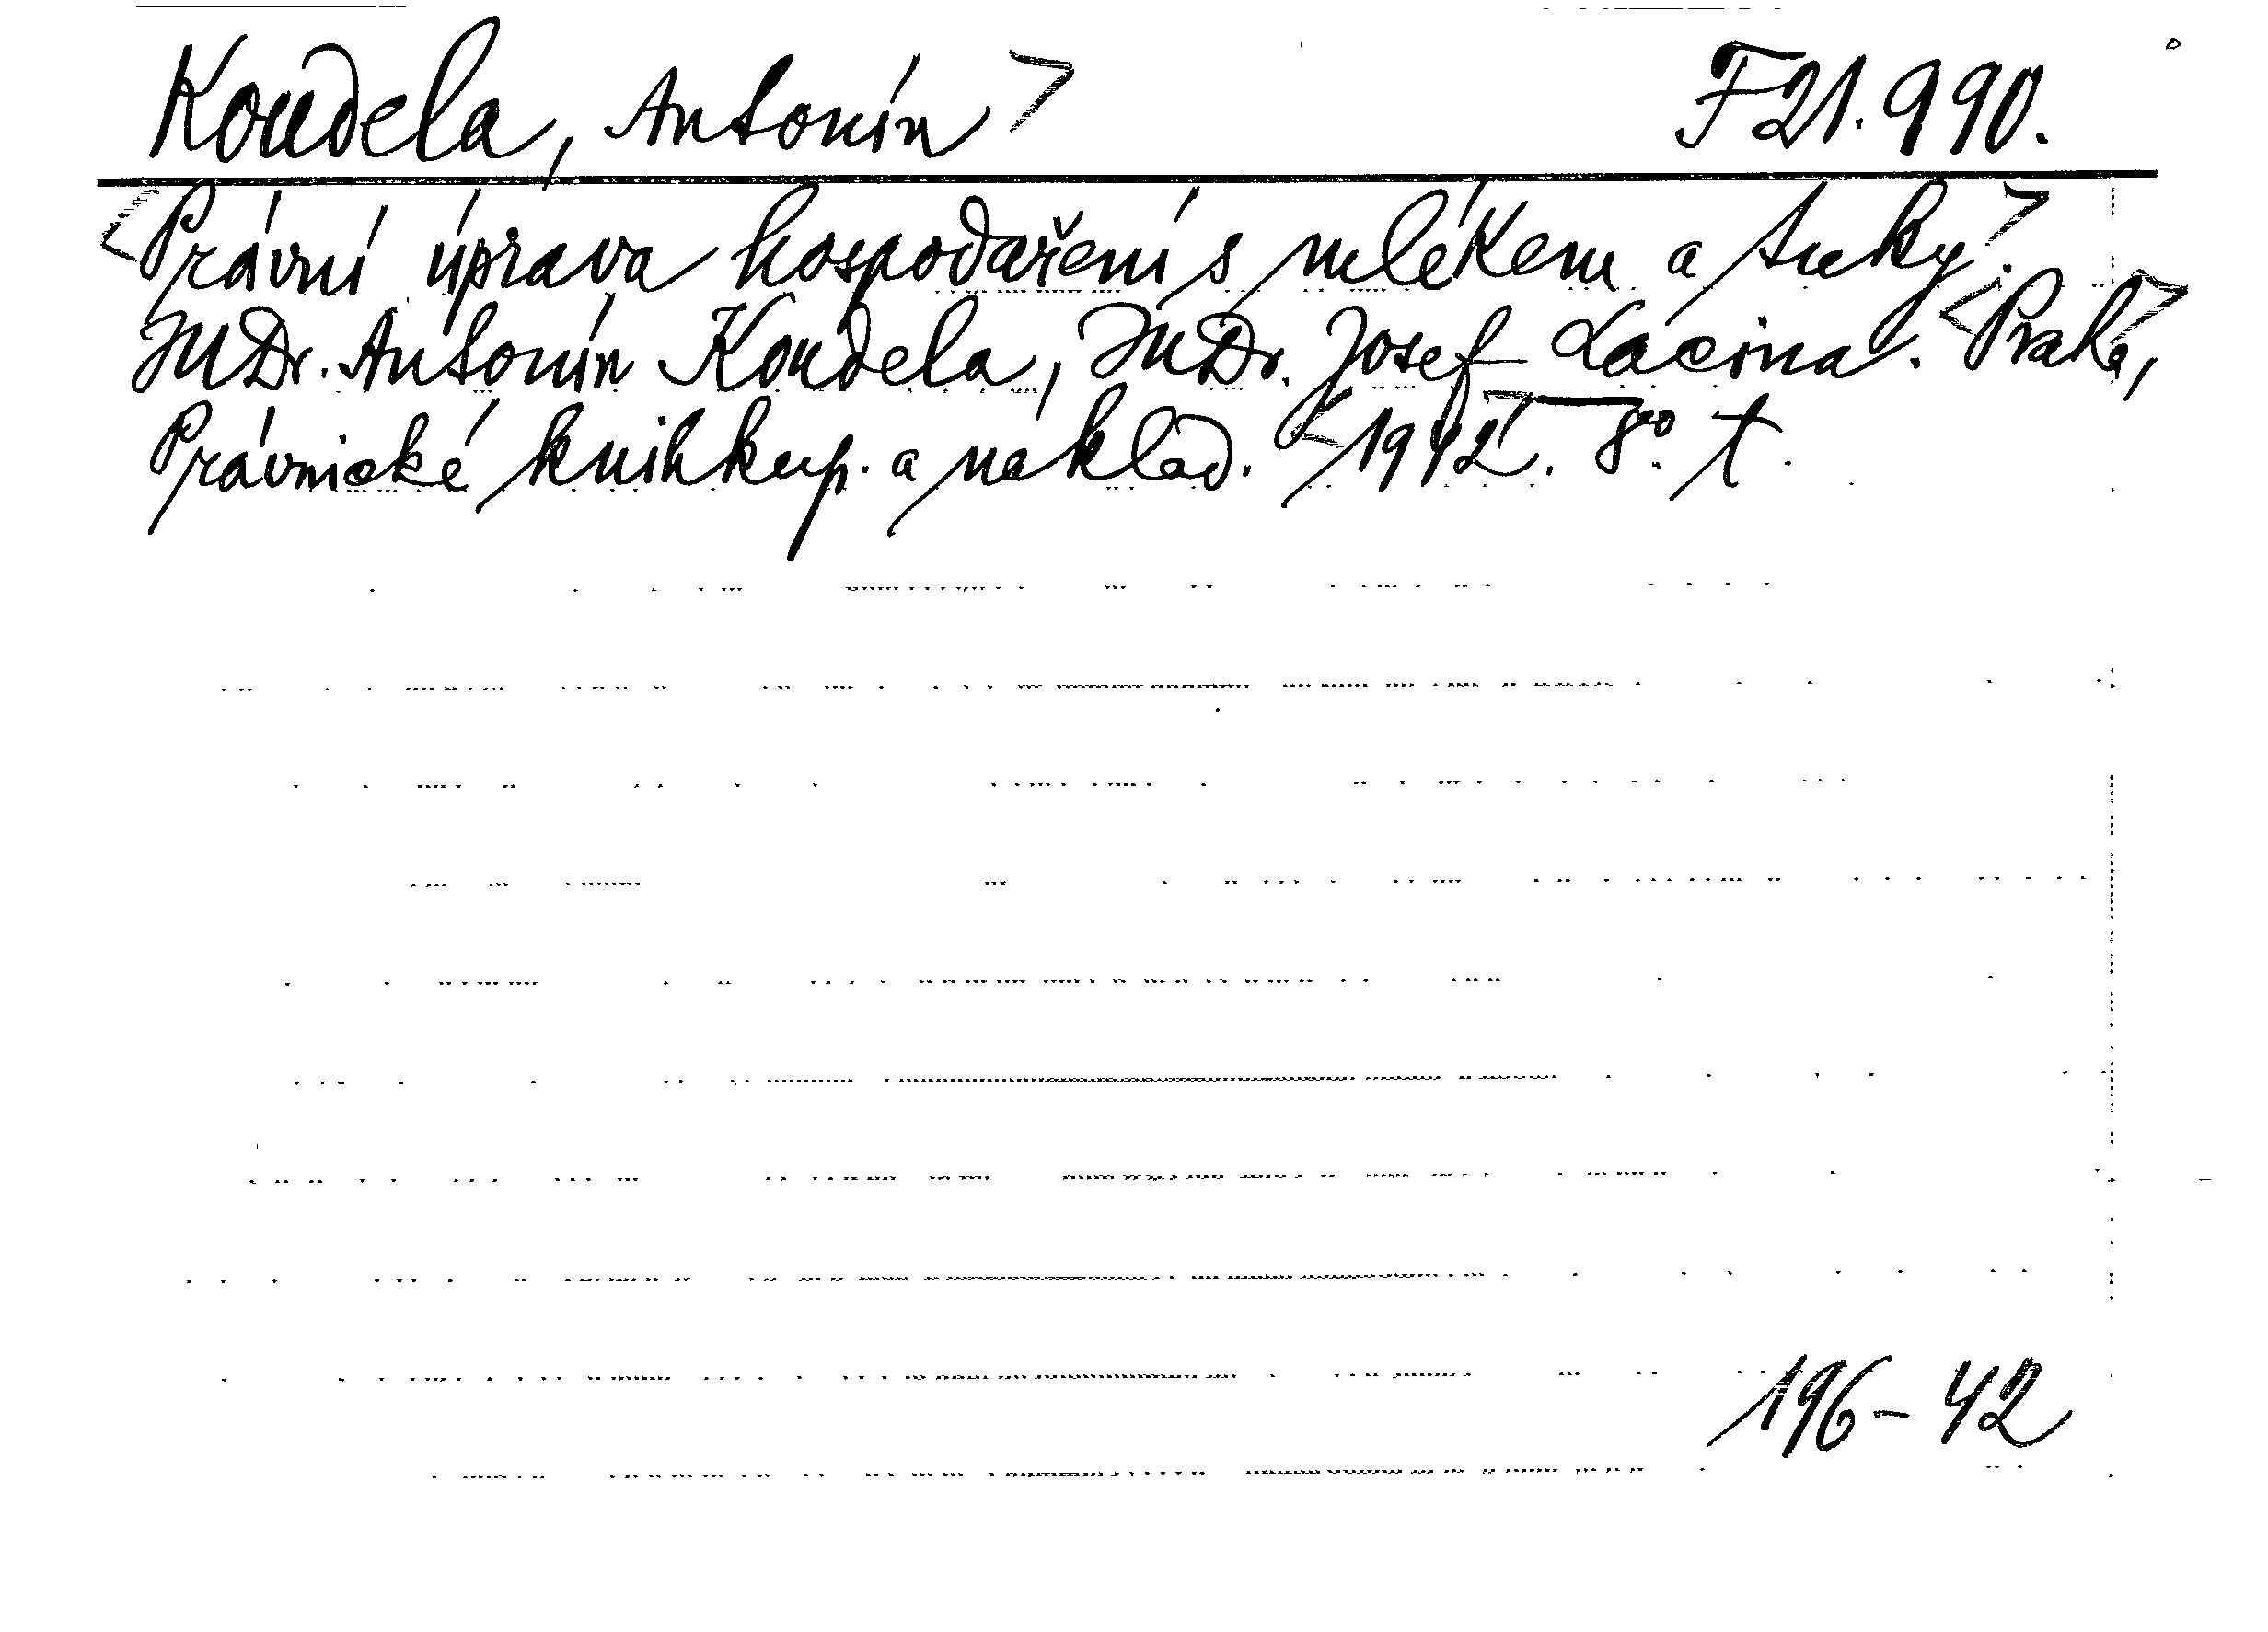 Koudela, Antonín > F 21.990.
<Právní úprava hospodaření s mlékem a tuky>.
JUDr. Antonín Koudela, JUDr. Josef Lácina. <Praha>,
Právnické knihkup. a náklad. <1942>. 8°. t.
196-42